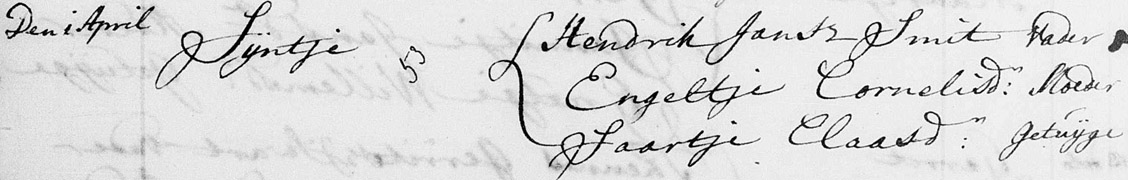 Den 1 April Sÿntje 53 Hendrik Jansz Smit Vader
Engeltje Cornelisdr: Moeder
Saartje Claasdr: Getuÿge